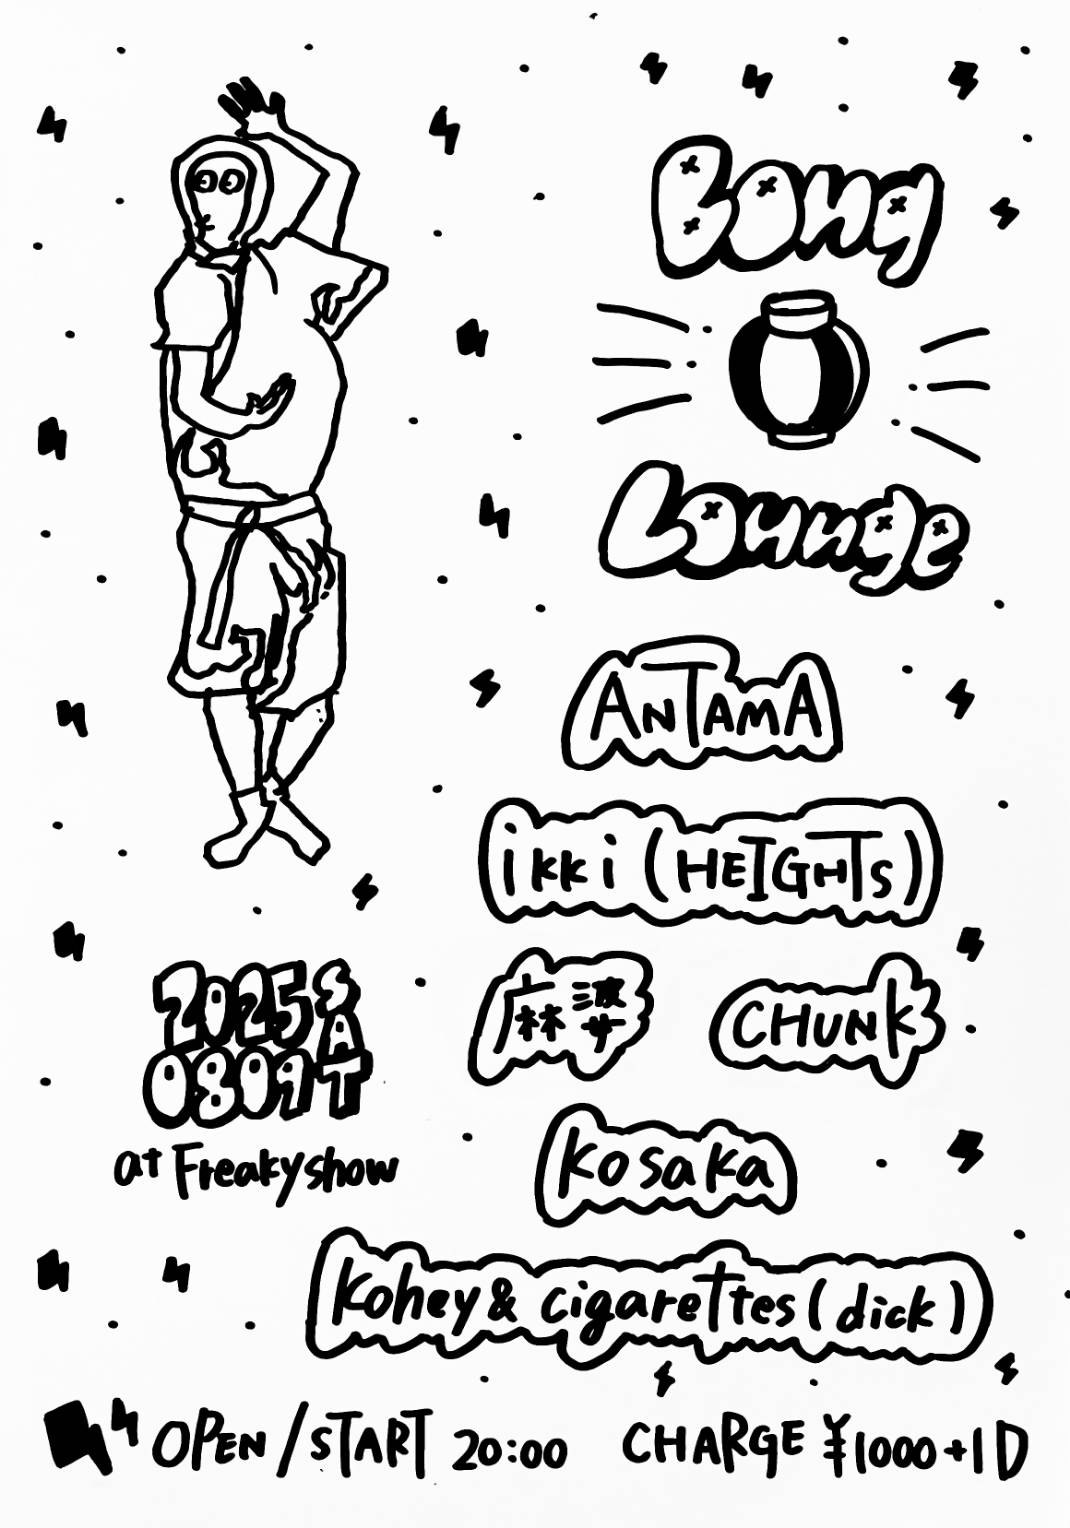 Bong
Lounge
ANTAMA
ikki (HEIGHTS)
麻婆
CHUNK
kosaka
kohey & cigarettes (dick)
2025 SAT
0809
at Freakyshow
OPEN / START 20:00 CHARGE ¥1000+1D